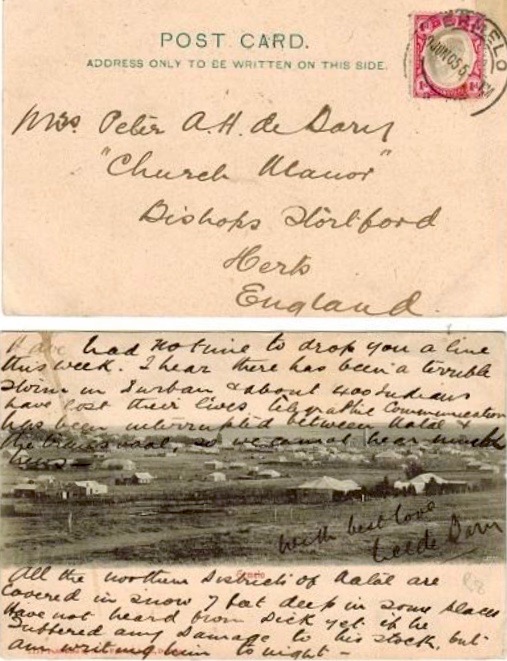 POST CARD.
ADDRESS ONLY TO BE WRITTEN ON THIS SIDE.
ERMELO
JUN 05
Mrs. Peter A. H. de Barry
"Church Manor"
Bishops Stortford
Herts
England.
Have had no time to drop you a line
this week. I hear there has been a terrible
storm in Durban & about 400 Indians
have lost their lives, telegraphic Communication
has been interrupted between Natal &
the Transvaal, so we cannot hear much
news
with best love
Ermelo
All the northern Districts of Natal are
Covered in snow 7 feet deep in some places
Have not heard from Dick yet if he
suffered any damage to his stock, but
am writing him to night -